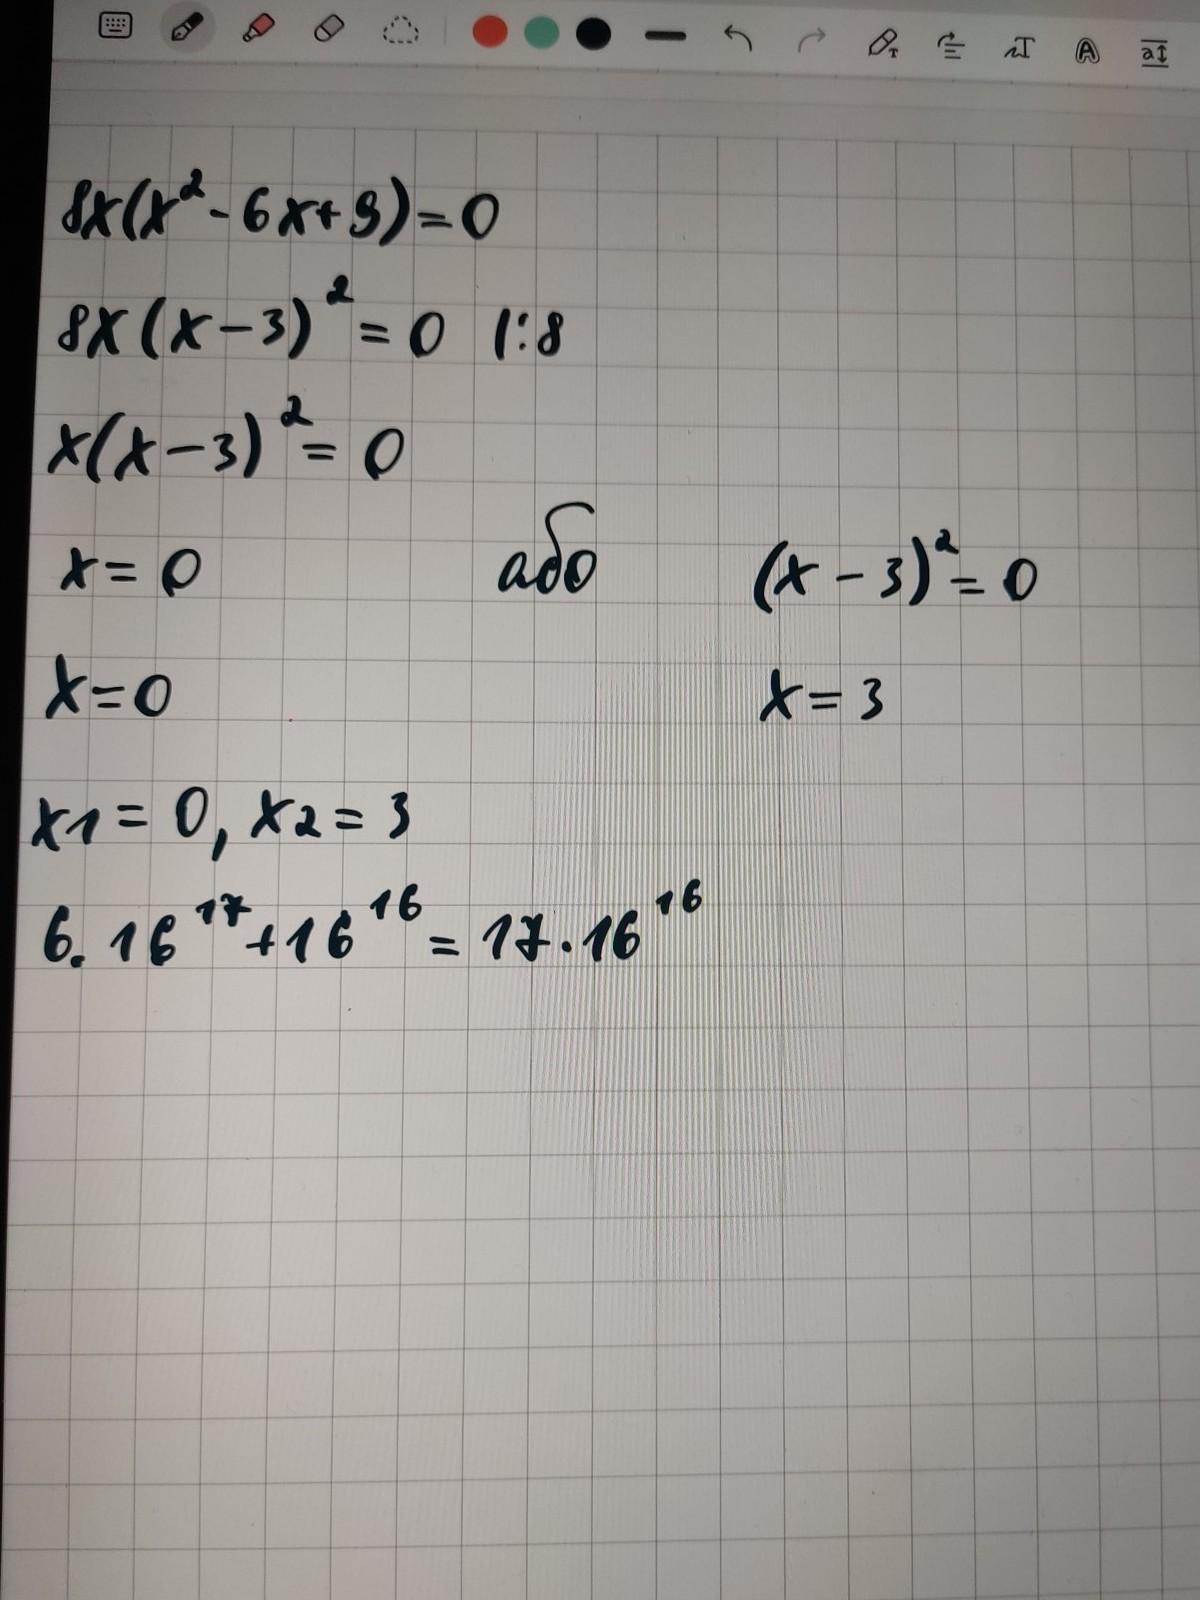 8x(x²-6x+9)=0
8x(x-3)²=0 |:8
x(x-3)²=0
x=0 або (x-3)²=0
x=0 x=3
x1=0, x2=3
6. 16¹⁷+16¹⁶=17·16¹⁶